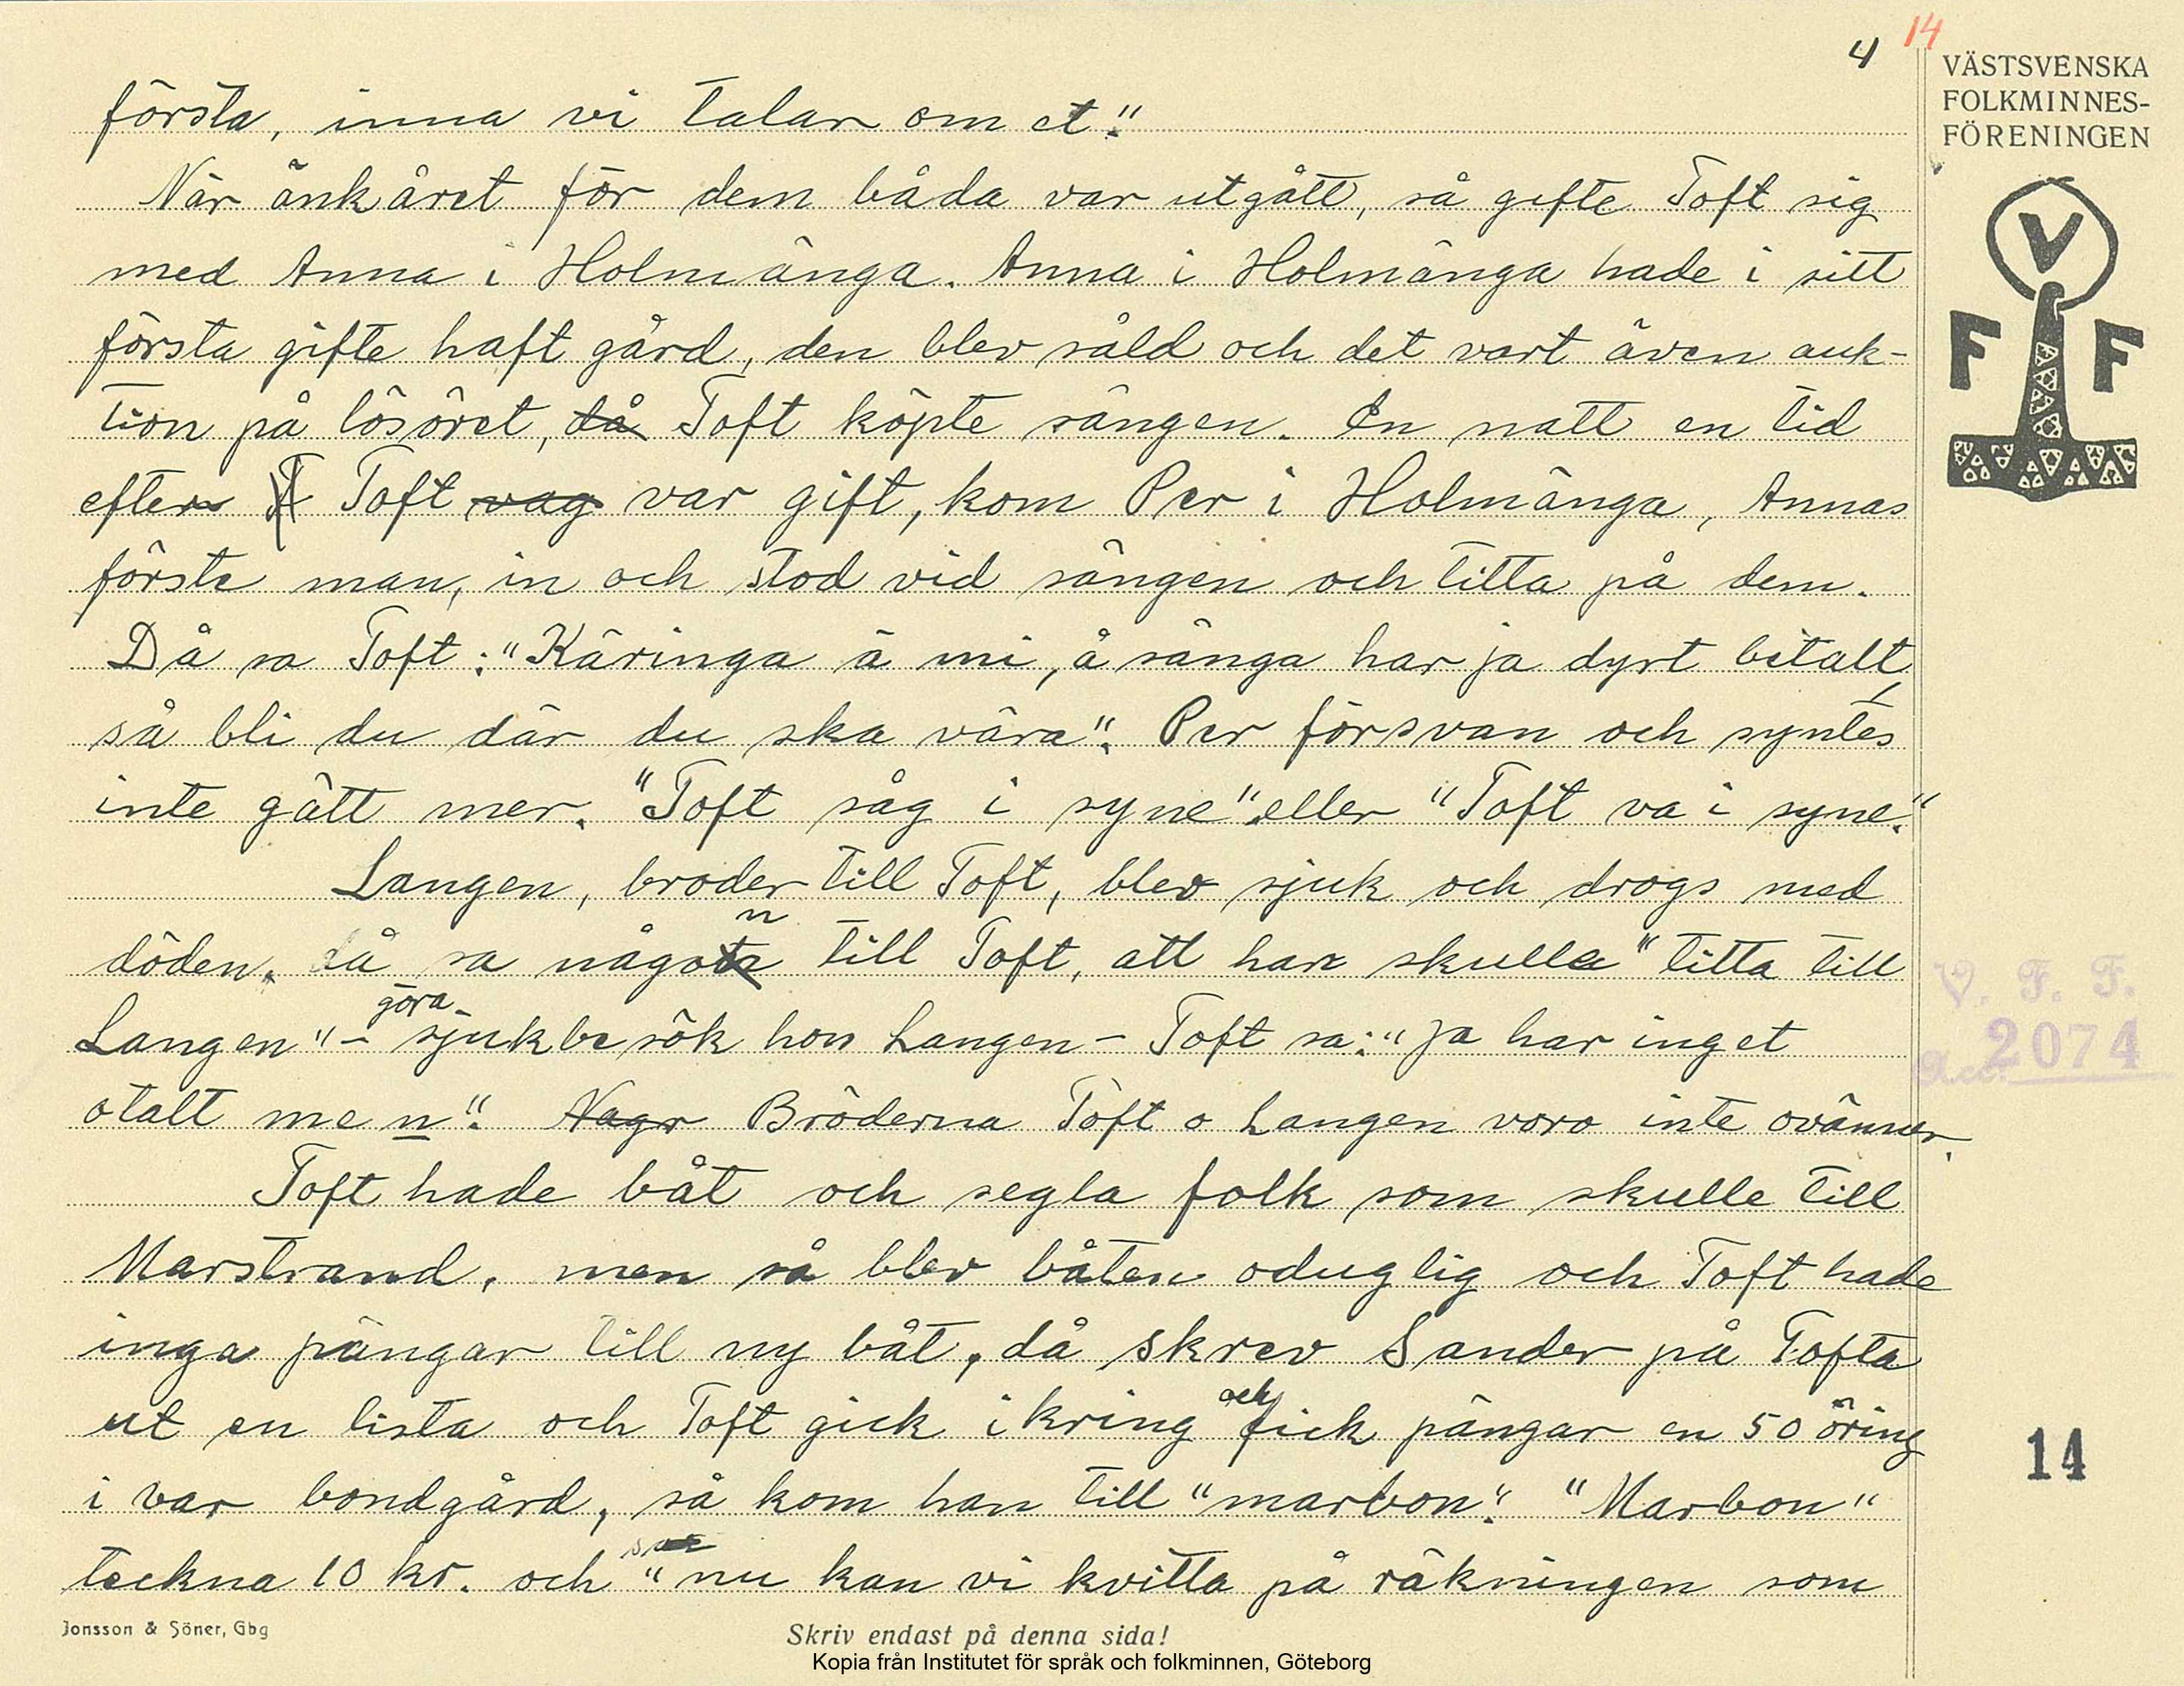 4 14
VÄSTSVENSKA
FOLKMINNES-
FÖRENINGEN
V
F F
första, inna vi talar om et."
När änkåret för dem båda var utgått, så gifte Toft sig
med Anna i Holmänga. Anna i Holmänga hade i sitt
första gifte haft gård, den blev såld och det vart även auk-
tion på lösöret, då Toft köpte sängen. En natt en tid
efter T Toft vag var gift, kom Per i Holmänga, Annas
förste man, in och stod vid sängen och titta på dem.
Då sa Toft: "Käringa ä mi, å sänga har ja dyrt betalt,
så bli du där du ska våra". Per försvan och syntes
inte gått mer. "Toft såg i syne" eller "Toft va i syne."
Langen, broder till Toft, blev sjuk och drogs med
döden. då sa någon till Toft, att han skulle "titta till
Langen" - göra sjukbesök hos Langen - Toft sa: "Ja har inget
otalt me n". Nagr Bröderna Toft o Langen voro inte ovänner.
Toft hade båt och segla folk som skulle till
Marstrand, men så blev båten oduglig och Toft hade
inga pängar till ny båt, då skrev Sander på Tofta
ut en lista och Toft gick ikring och fick pängar en 50 öring
i var bondgård, så kom han till "marbon". "Marbon"
teckna 10 kr. och sa "nu kan vi kvitta på räkningen som
V. F. F.
Acc. 2074
14
Jonsson & Söner, Gbg
Skriv endast på denna sida!
Kopia från Institutet för språk och folkminnen, Göteborg